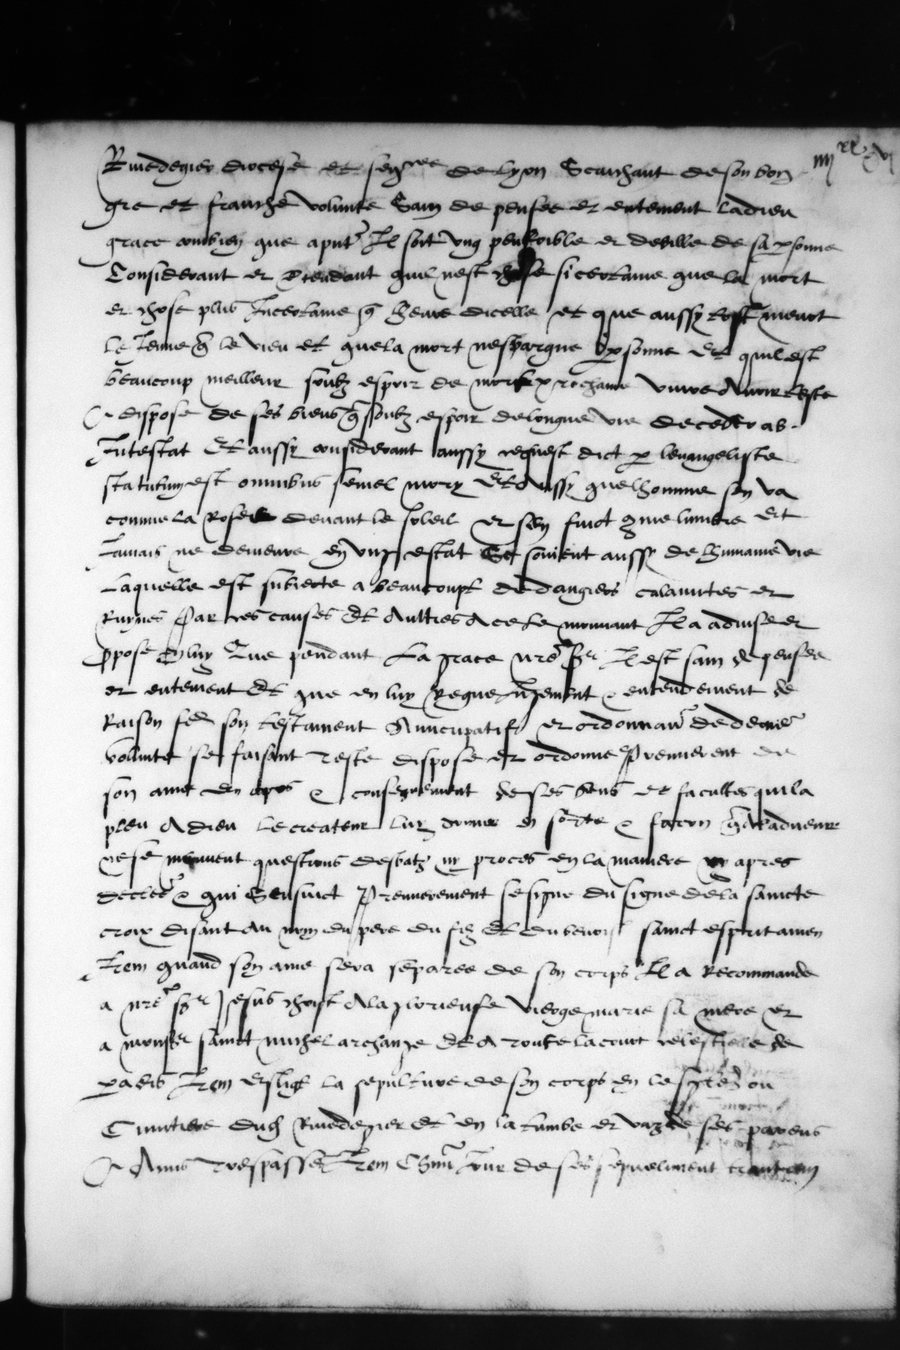 iiii xx vi
Rivedegier diocese et sen.ee de lyon Scaichant de son bon
gre et franche volunte Sain de pensee et entement la dieu
grace combien que a pnt Il soit ung peu foible et debille de sa psonne
Considerant et Attendant quil nest chose si certaine que la mort
et chose plus Incertaine q lheure dicelle et que aussy tost meurt
le Jeune q le vieu et que la mort nespargne psonne Et quil est
beaucoup meilleur soubz espoir de mort prochaine vivre Avoir teste
et dispose de ses biens q soubz espoir de longue vie deceder ab
Intestat Et aussy considerant aussy ce quest dict p levangeliste
statutum est omnibus semel mory Et Aussy que lhomme sen va
comme la rosee devant le soleil et sen fuict come lumbre Et
Jamais ne demeure en ung estat Et souvent aussy de humaine vie
Laquelle est subiecte a beaucoupt de dangiers calamites et
Ruynes Par ces causes Et Aultres A ce le mouvant Il a advise et
ppose En luy Que pendant La grace nre sr Il est sain de pensee
et entement Et que en luy Regne Jugement & entendement de
Raison fe son testament Nuncupatif et ordonnan de derniere
volunte se faisant teste dispose et ordonne Premierement de
son ame en apres & consequement de ses biens et facultes quil a
pleu A dieu le createur luy donner en sorte & facon q A ladvenir
ne se meuvent questions desbatz ny proces en la maniere cy apres
declere & qui Sensuict Premierement se signe du signe de la saincte
croix disant Au nom du pere du filz Et du benoist sainct esprit amen
Item quand son ame sera separee de son corps Il a Recommande
a nre sr Jesus christ A la glorieuse vierge marie sa mere et
a monsr sainct michel archange Et A toute la court celestielle de
padis Item Eslist la sepulture de son corps en le ou
Cimitiere dudt Rivedegier et en la tumbe et vaz de ses parens
et Amis trespasses Item Jour de ses sepueliment